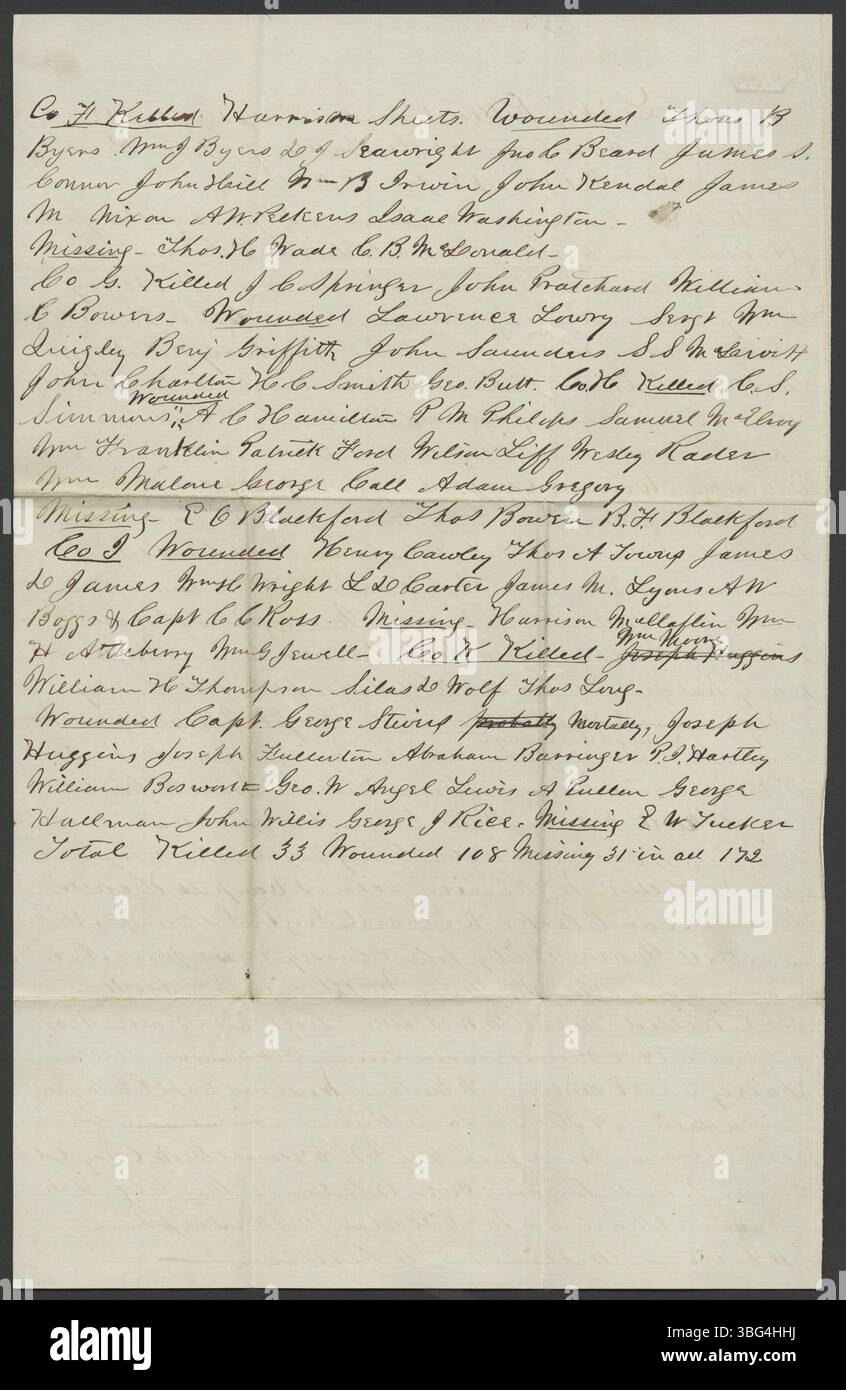 Co F Killed Harrison Sheets. Wounded Thos B
Byers. Wm J Byers L J Seawright Jno C Beard James S.
Connor John Hill Wm B Irwin, John Kendal James
M Nixon A W. Pickens Isaac Washington -
Missing - Thos. H Wade C. B. McDonald -
Co G. Killed J C Springer John Pratchard William
C Bowers - Wounded Lawrence Lowry Sergt Wm
Quigley Benj Griffith John Saunders S S
John Charlton H C Smith Geo. Butt. Co. H Killed C. S.
Wounded
Simmons A C Hamilton P M Philips Samuel McElroy
Wm Franklin Patrick Ford Wilson Liff Wesley Rader
Wm Malone George Call Adam Gregory
Missing - E O Blackford Thos Bowen B. F. Blackford
Co I Wounded Henry Cawley Thos A Towns James
L James Wm H Wright L L Carter James M. Lyons A W
Boggs & Capt C C Ross. Missing - Harrison McClaflin Wm
H Atteberry Wm G Jewell - Co K Killed - Joseph Huggins
Wm Moore
William H Thompson Silas L Wolf Thos Long -
Wounded Capt. George Stevens probably Mortally, Joseph
Huggins Joseph Fullerton Abraham Barringer P. J. Hartley
William Bosworth Geo. W Angel Lewis A Pullen George
Hallman John Willis George J Rice. Missing E W Tucker
Total Killed 33 Wounded 108 Missing 31 in all 172
3BG4HHJ
alamy
www.alamy.com